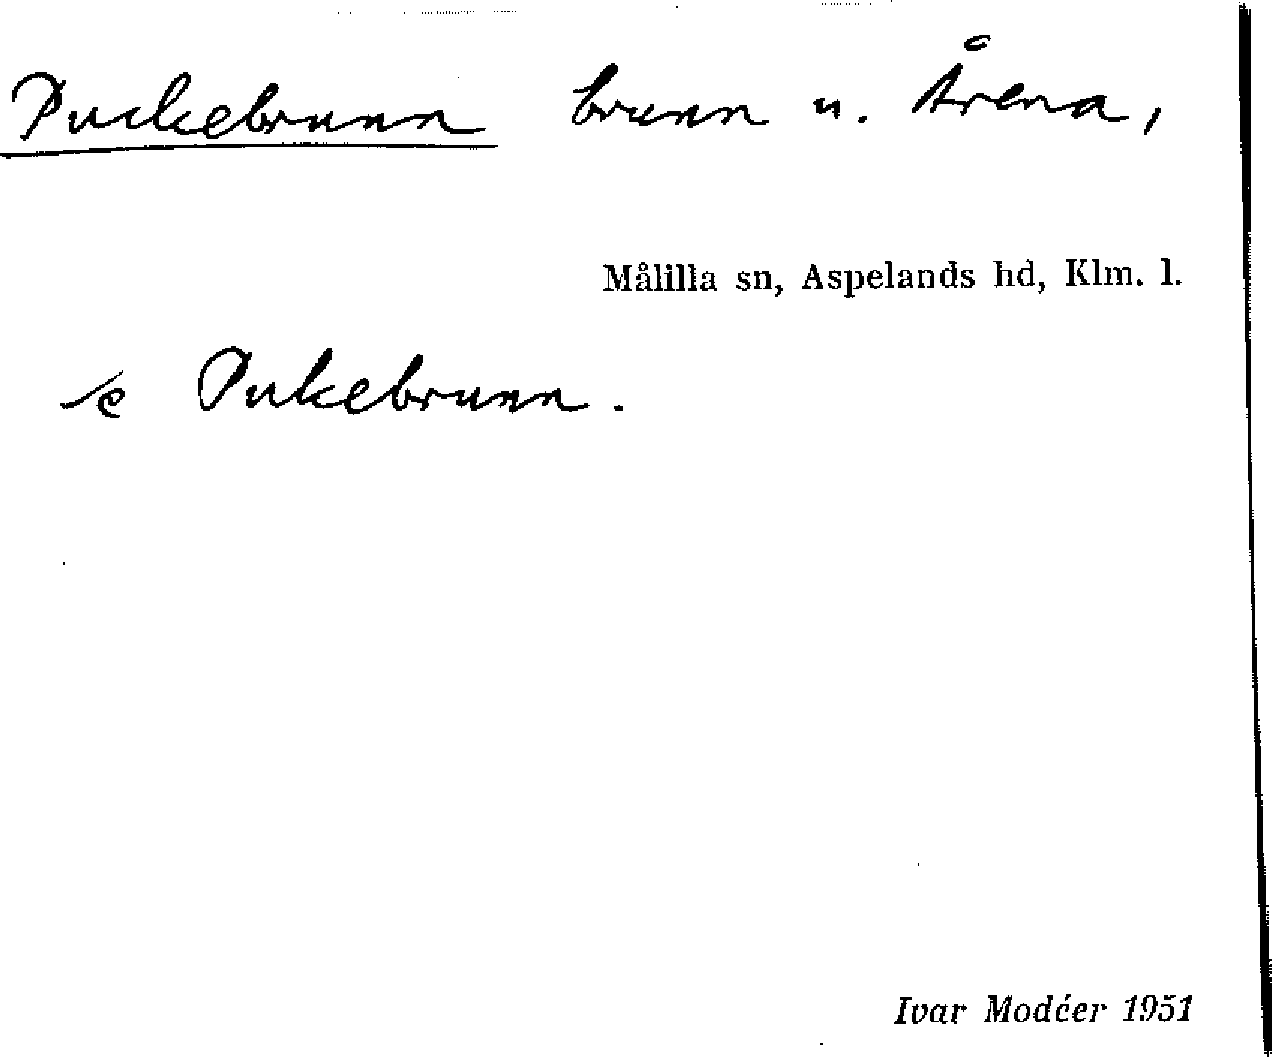 Puckebrunn brunn u. Årena,
Målilla sn, Aspelands hd, Klm. l.
Pukebrunn.
Ivar Modéer 1951